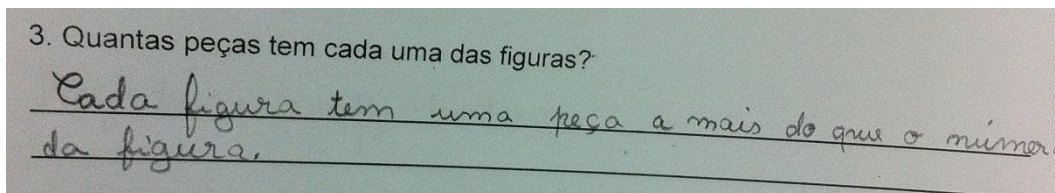 3. Quantas peças tem cada uma das figuras?
Cada figura tem uma peça a mais do que o númer
da figura.